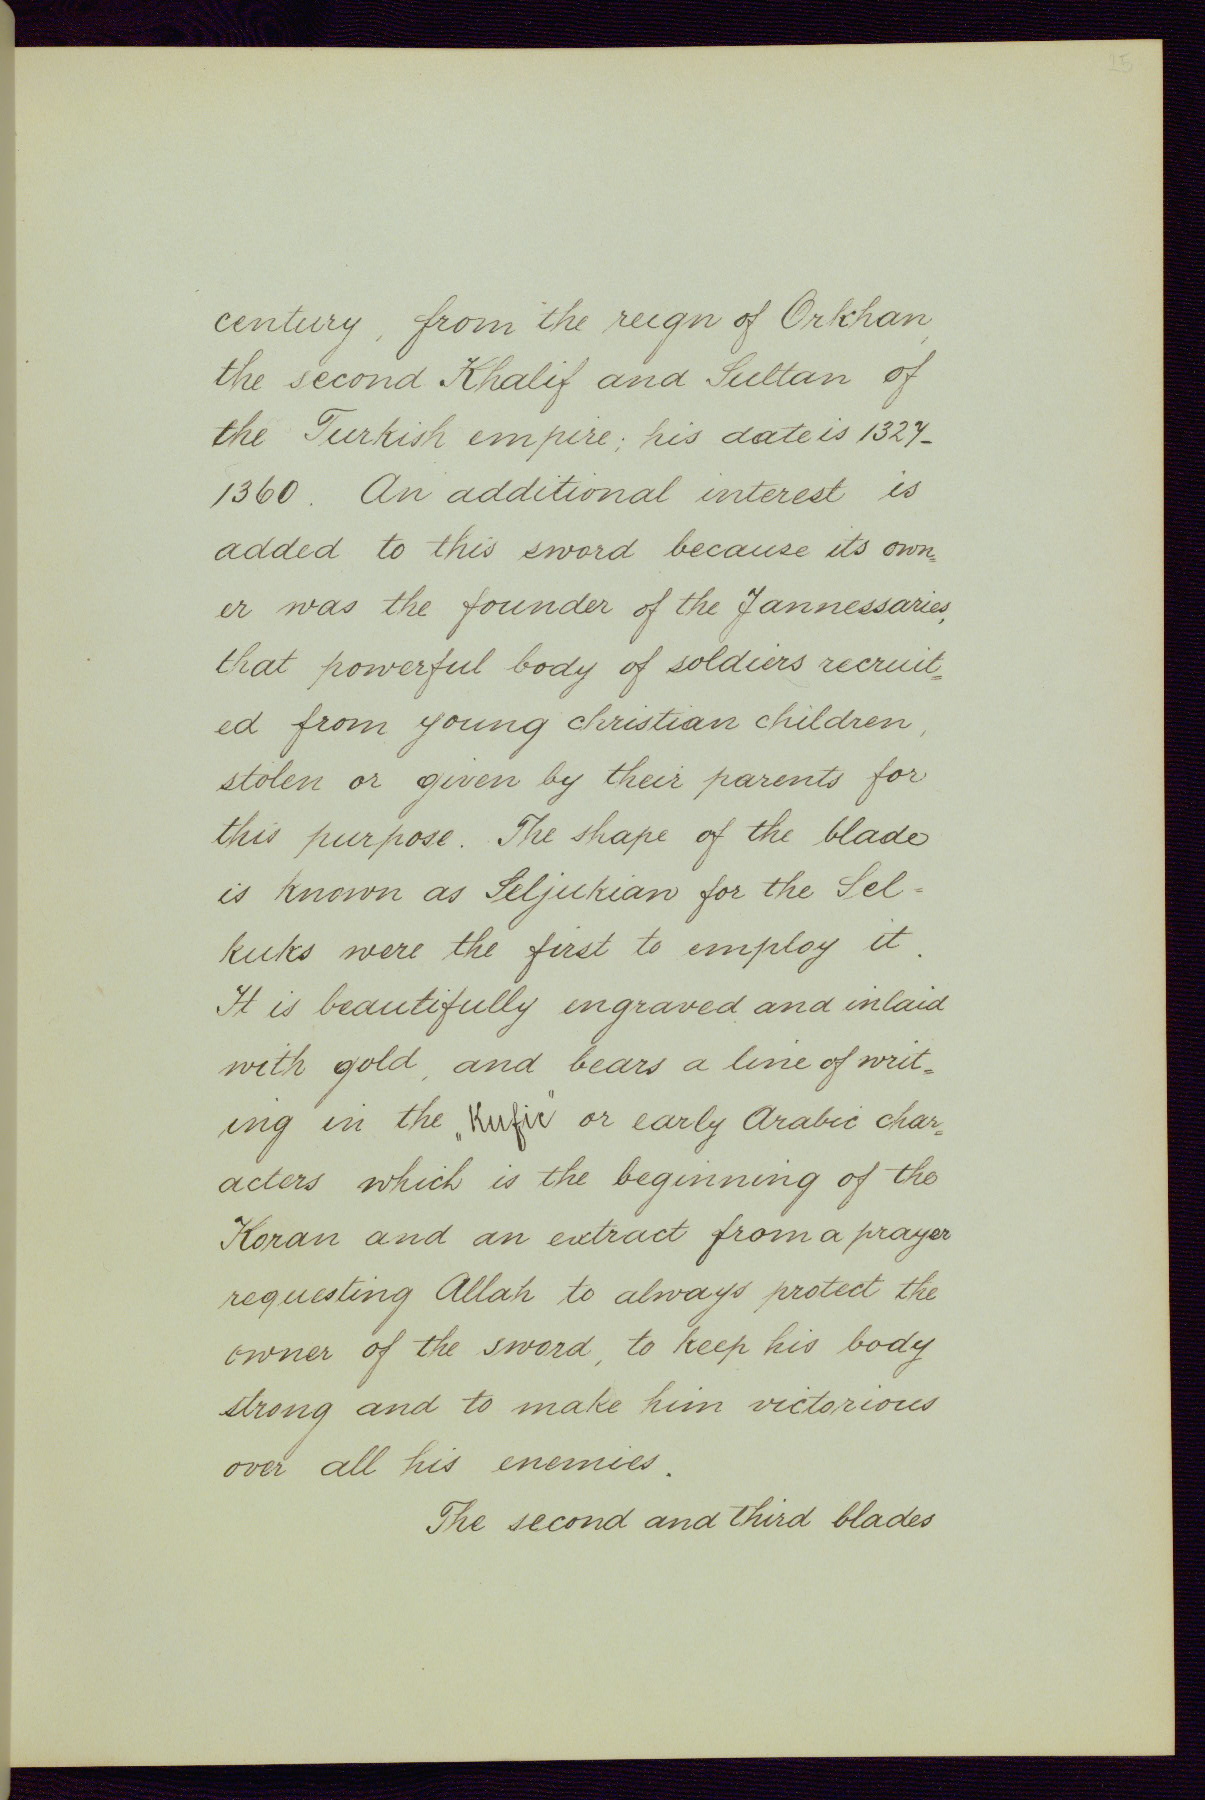 25
century, from the reign of Orkhan,
the second Khalif and Sultan of
the Turkish empire; his date is 1327-
1360. An additional interest is
added to this sword because its own=
er was the founder of the Jannessaries,
that powerful body of soldiers recruit=
ed from young christian children,
stolen or given by their parents for
this purpose. The shape of the blade
is known as Seljukian for the Sel=
kuks were the first to employ it.
It is beautifully engraved and inlaid
with gold, and bears a line of writ=
ing in the „Kufic" or early Arabic char=
acters which is the beginning of the
Koran and an extract from a prayer
requesting Allah to always protect the
owner of the sword, to keep his body
strong and to make him victorious
over all his enemies.
The second and third blades